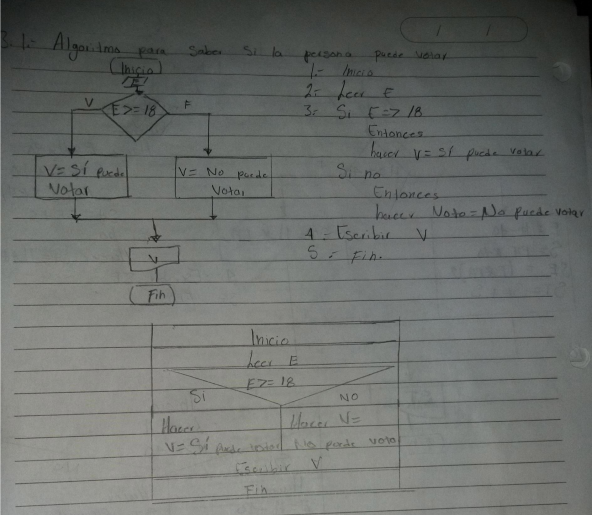 3.1.- Algoritmo para saber si la persona puede votar
Inicio
E
V
E>= 18
F
V= Sí puede
Votar
V= No puede
Votar
V
Fin
1.- Inicio
2.- Leer E
3.- Si E=> 18
Entonces
hacer V= Sí puede votar
Si no
Entonces
hacer Voto = No puede votar
4.- Escribir V
5.- Fin.
Inicio
Leer E
E>= 18
Sí
NO
Hacer
V= Sí puede votar
Hacer V=
No puede votar
Escribir V
Fin